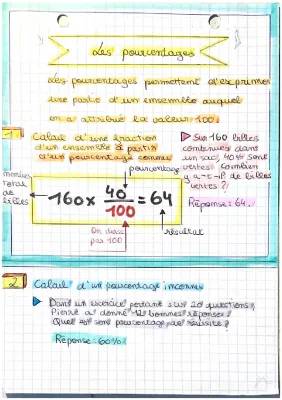 Les pourcentages
Les pourcentages permettent d'exprimer
une partie d'un ensemble auquel
on a attribué la valeur 100.
1 Calcul d'une fraction
d'un ensemble à partir
d'un pourcentage connu
▶ Sur 160 billes
contenues dans
un sac, 40% sont
vertes. Combien
y a-t-il de billes
vertes ?
Réponse : 64.
pourcentage
nombre
total de
billes
160 × 40/100 = 64
On divise
par 100
résultat
2 Calcul d'un pourcentage inconnu
▶ Dans un exercice portant sur 20 questions,
Pierre a donné 12 bonnes réponses.
Quel est son pourcentage de réussite ?
Réponse : 60%